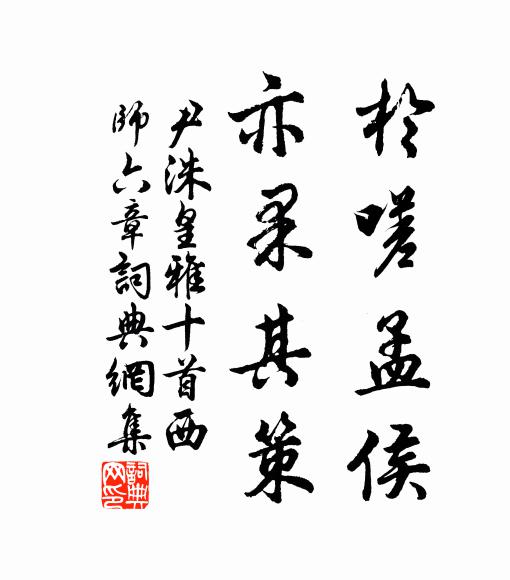 於嗟孟侯
亦果其策
尹洙皇雅十首西
師六章詞典網集
詞典網印